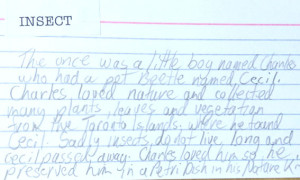 INSECT
The once was a little boy named Charles
who had a pet Beetle named Cecil.
Charles loved nature and collected
many plants, leaves and vegetation
from the Toronto Islands, where he found
Cecil. Sadly insects do not live long and
cecil passed away. Charles loved him so, he
preserved him in a Petri Dish in his Nature